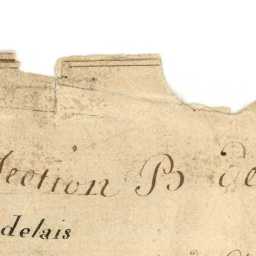 Section B de
delais